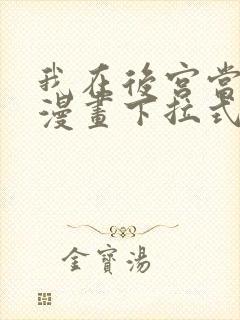 我在後宮當
漫畫下拉式
金寶湯